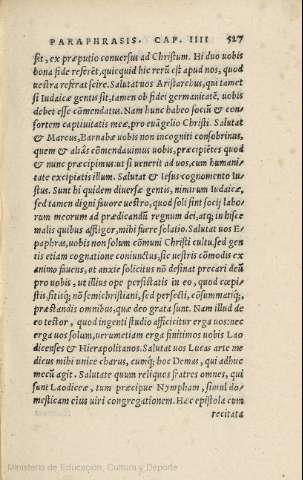 PARAPHRASIS. CAP. IIII 527
sit, ex præputio conuersus ad Christum. Hi duo uobis
bona fide referēt, quicquid hic rerū est apud nos, quod
uestra referat scire. Salutat uos Aristarchus, qui tamet
si Iudaicæ gentis sit, tamen ob fidei germanitatē, uobis
debet esse cōmendatus. Nam hunc habeo sociū & con-
sortem captiuitatis meæ, pro euāgelio Christi. Salutat
& Marcus, Barnabæ uobis non incogniti consobrinus,
quem & aliâs cōmendauimus uobis, præcipiētes quod
& nunc præcipimus: ut si uenerit ad uos, cum humani-
tate excipiatis illum. Salutat & Iesus cognomento Iu-
stus. Sunt hi quidem diuersæ gentis, nimirum Iudaicæ,
sed tamen digni fauore uestro, quod soli sint socij labo-
rum meorum ad prædicandū regnum dei, atq; in hisce
malis quibus affligor, mihi fuere solatio. Salutat uos E-
paphras, uobis non solum cōmuni Christi cultu, sed gen
tis etiam cognatione coniunctus, sic uestris cōmodis ex
animo fauens, ut anxie solicitus nō desinat precari deū
pro uobis, ut illius ope perfistatis in eo, quod cœpi-
stis, sitiśq; nō semichristiani, sed perfecti, cōsummatiq́;,
præstandis omnibus, quæ deo grata sunt. Nam illud de
eo testor, quod ingenti studio afficitur erga uos: nec
erga uos solum, uerumetiam erga finitimos uobis Lao
dicenses & Hierapolitanos. Salutat uos Lucas arte me
dicus mihi unice charus, cumq́; hoc Demas, qui adhuc
mecū agit. Salutate quum reliquos fratres omnes, qui
sunt Laodiceæ, tum præcipue Nympham, simul do-
mesticam eius uiri congregationem. Hæc epistola cum
recitata
Ministerio de Educación, Cultura y Deporte